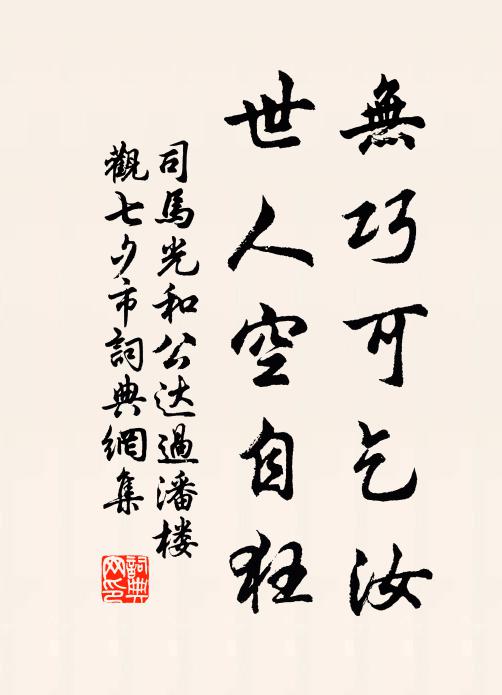 無巧可乞汝
世人空自狂
司馬光和公达過潘楼
觀七夕市詞典網集
詞典网印